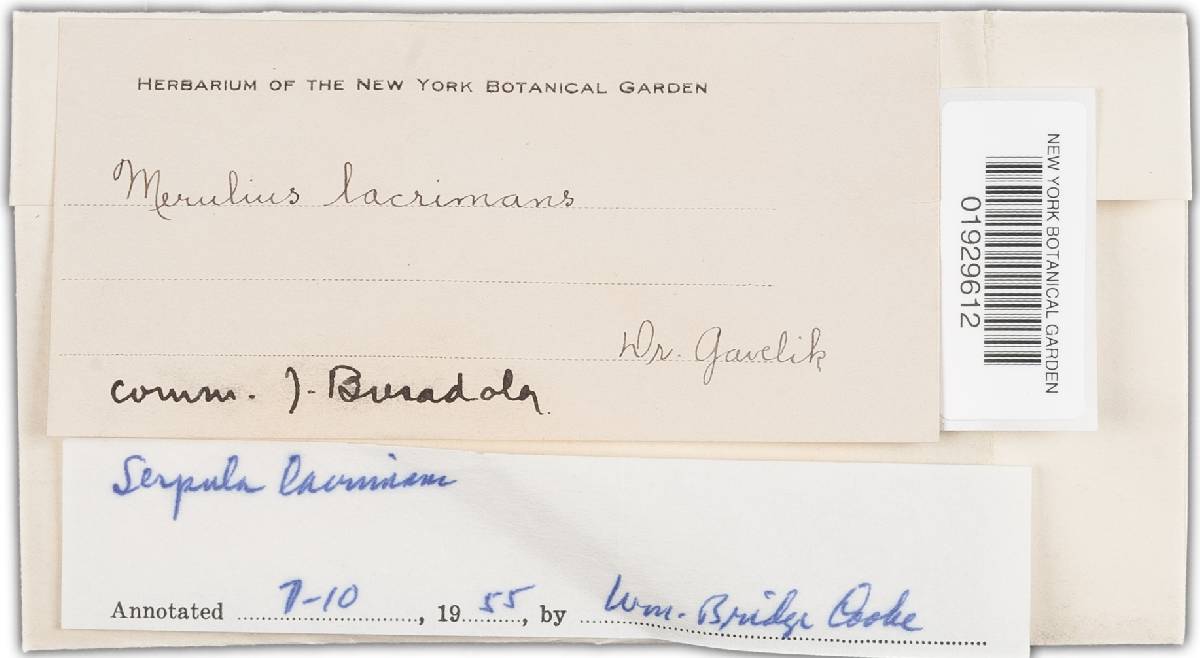 HERBARIUM OF THE NEW YORK BOTANICAL GARDEN
Merulius lacrimans
Dr. Gavelik
comm. J. Bresadola
NEW YORK BOTANICAL GARDEN
01929612
Serpula lacrimans
Annotated 7-10, 1955, by Wm. Bridge Cooke